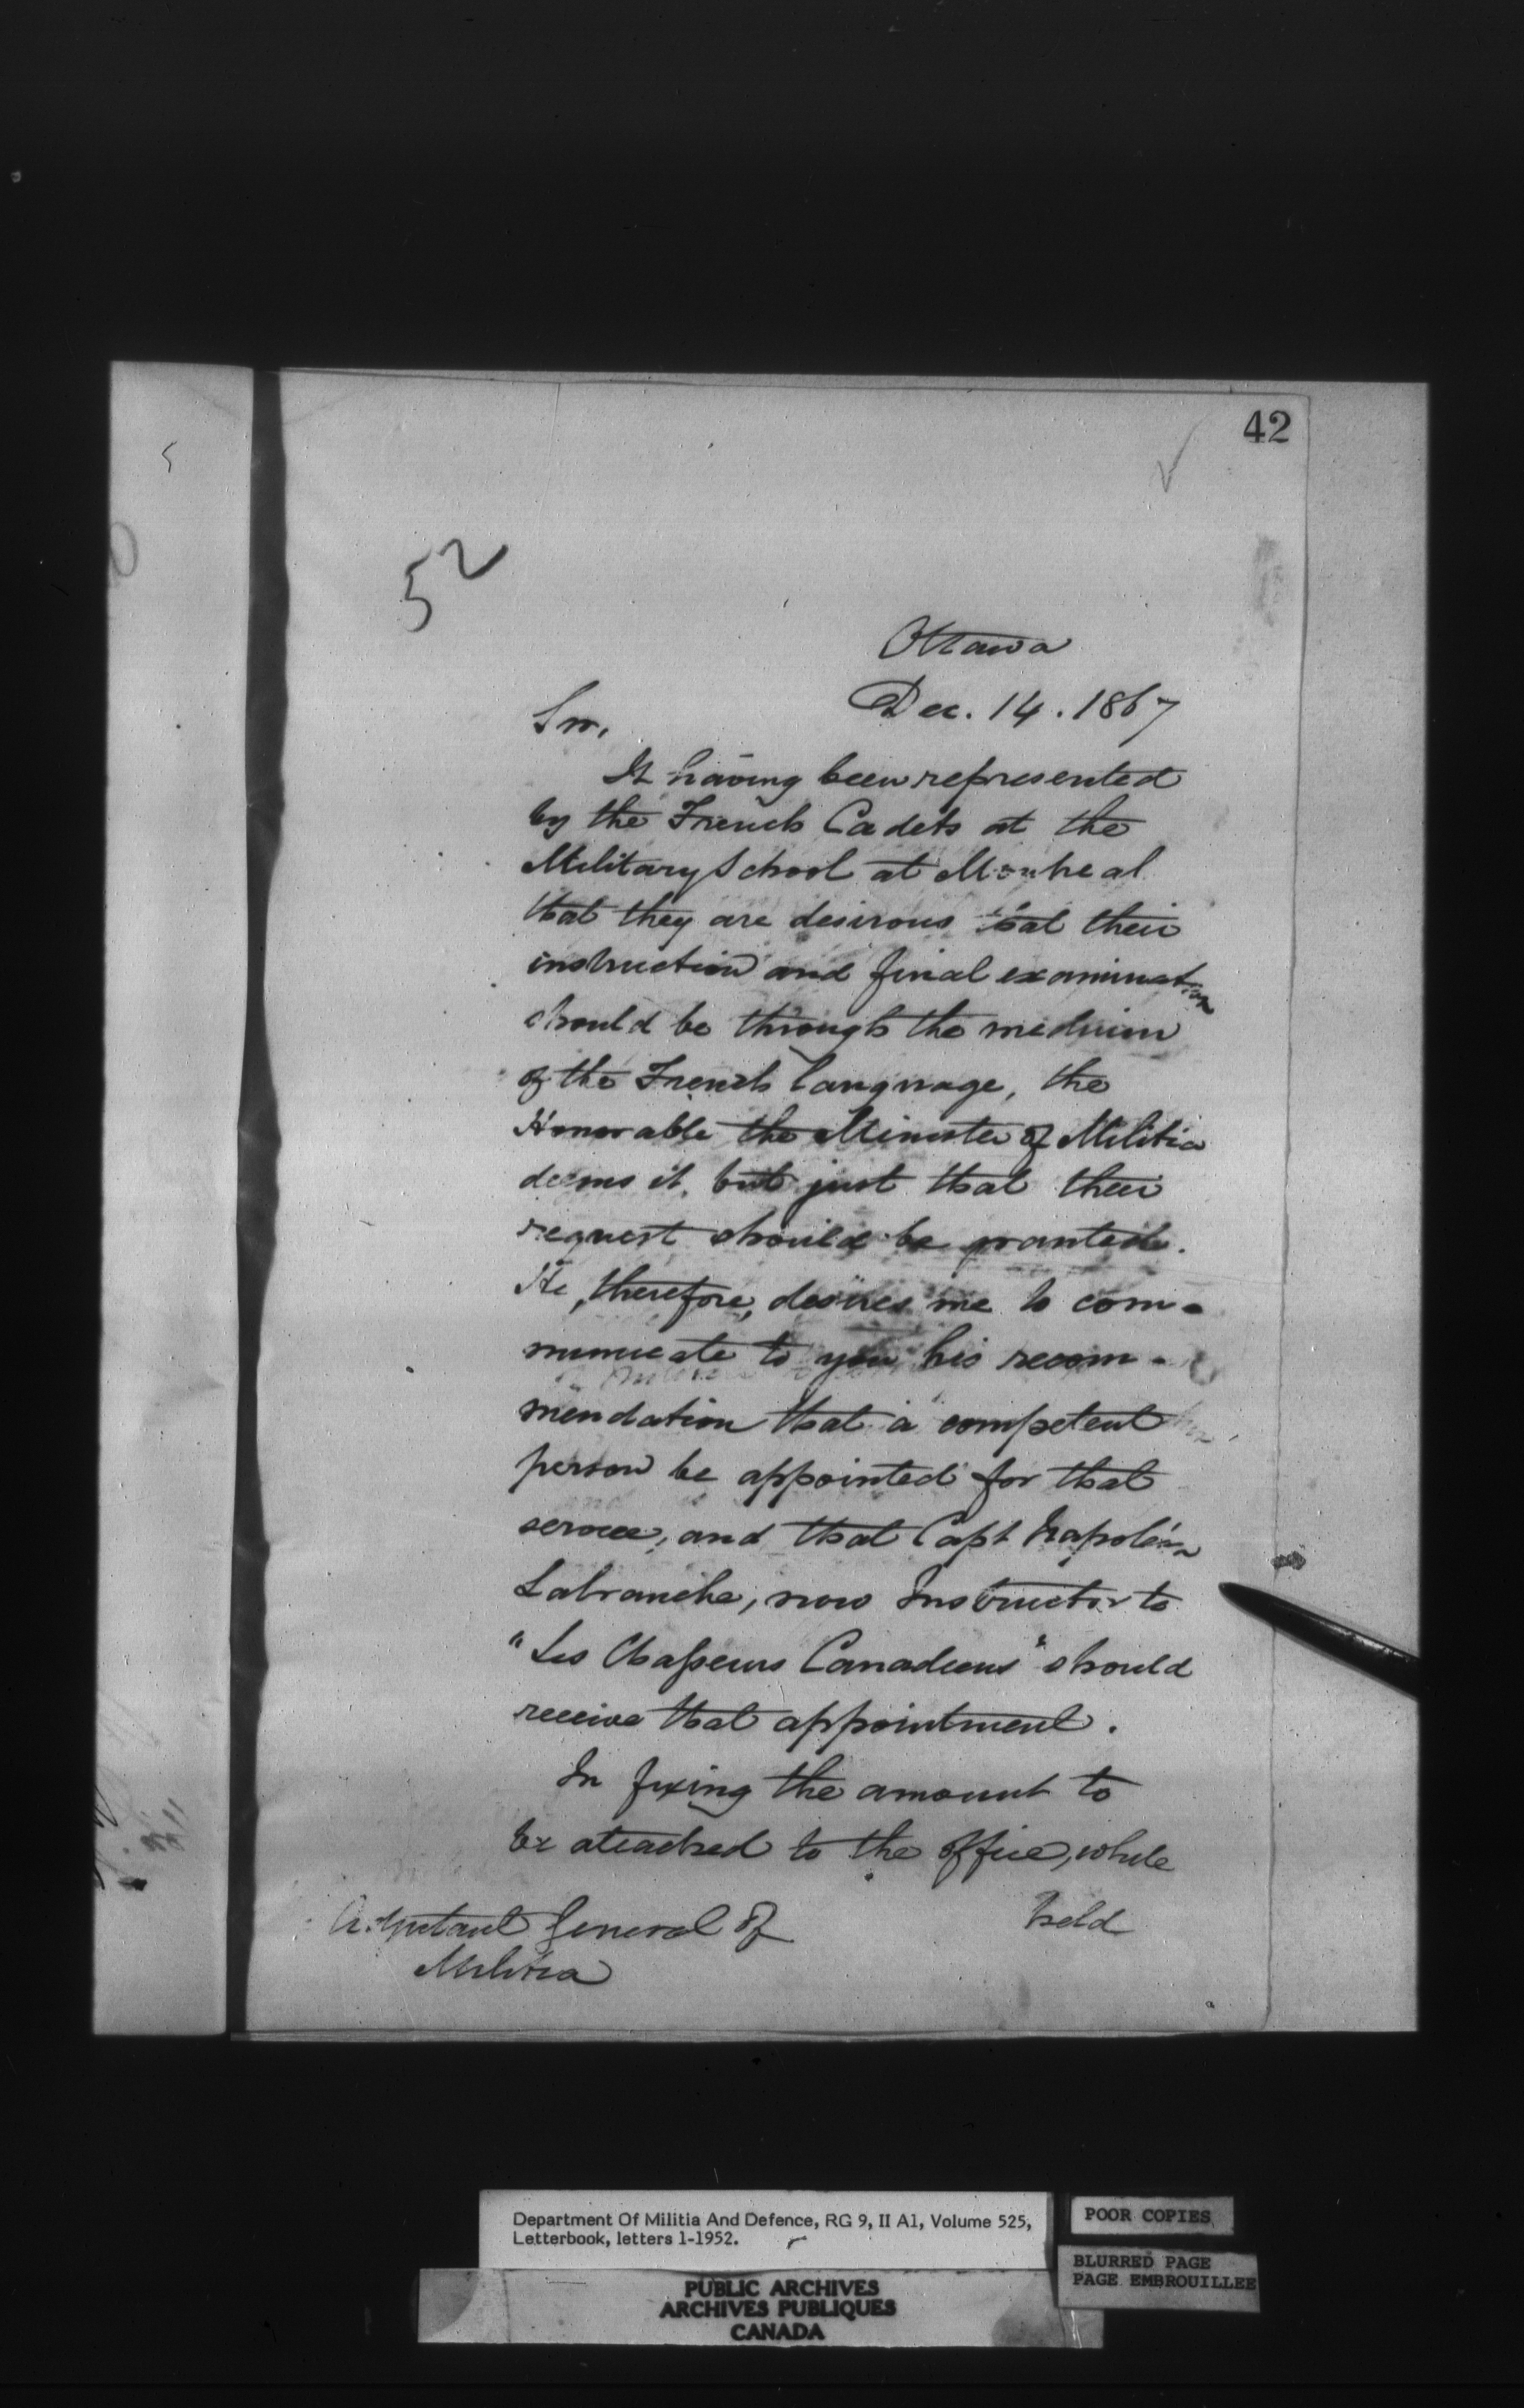 42
52
Ottawa
Dec. 14. 1867
Sir,
It having been represented
by the French Cadets at the
Military School at Montreal
that they are desirous that their
instruction and final examination
should be through the medium
of the French language, the
Honorable the Minister of Militia
deems it but just that their
request should be granted.
He, therefore, desires me to com-
municate to you his recom-
mendation that a competent
person be appointed for that
service, and that Capt Napoléon
Labranche, now Instructor to
"Les Chasseurs Canadiens" should
receive that appointment.
In fixing the amount to
be attached to the office, while
held
Adjutant General of
Militia
Department Of Militia And Defence, RG 9, II A1, Volume 525,
Letterbook, letters 1-1952.
POOR COPIES
BLURRED PAGE
PAGE EMBROUILLEE
PUBLIC ARCHIVES
ARCHIVES PUBLIQUES
CANADA